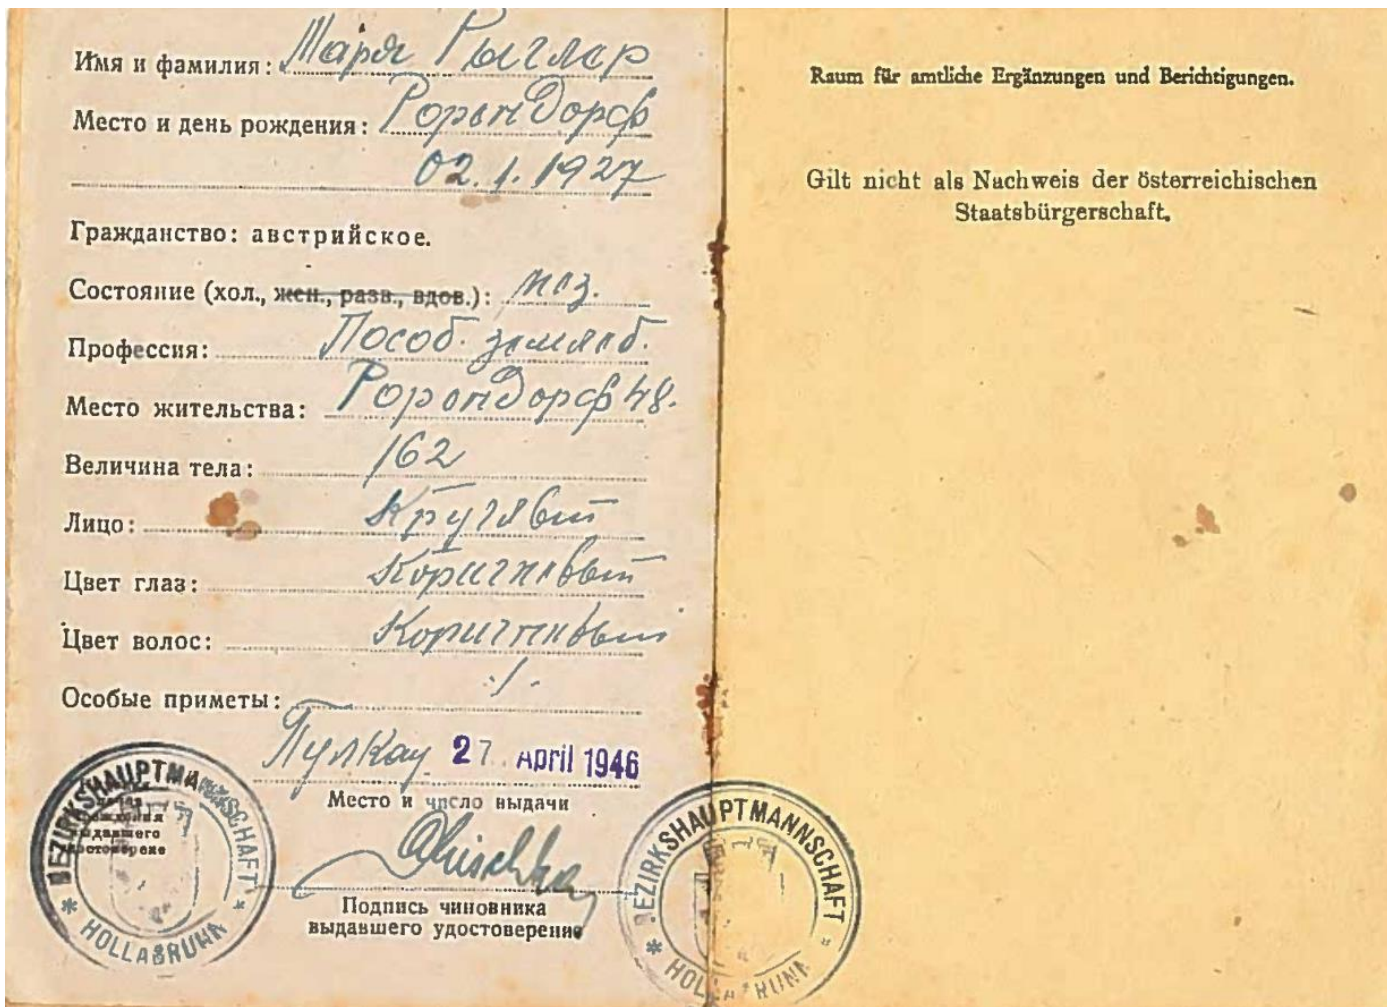 Имя и фамилия: Маря Рыглер
Место и день рождения: Рорендорф
02.1.1927
Гражданство: австрийское.
Состояние (хол., жен., разв., вдов.): нез.
Профессия: Пособ. земляд.
Место жительства: Рорендорф 48.
Величина тела: 162
Лицо: Круглвый
Цвет глаз: Коригнвый
Цвет волос: Коригнвый
Особые приметы: ./.
Пулкау 27. April 1946
Место и число выдачи
Подпись чиновника
выдавшего удостоверение
BEZIRKSHAUPTMANNSCHAFT
* HOLLABRUNN *
выдавшего
Raum für amtliche Ergänzungen und Berichtigungen.
Gilt nicht als Nachweis der österreichischen
Staatsbürgerschaft.
BEZIRKSHAUPTMANNSCHAFT
* HOLLABRUNN *